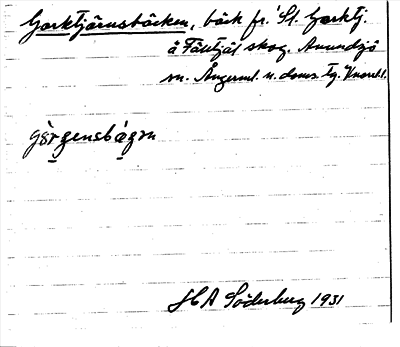 Gorktjärnsbäcken, bäck fr. St. Gorktj.
å Fälltjäl skog. Anundsjö
sn. Ångerml. n. doms. tg.
görgensbägen
H A Söderberg 1931